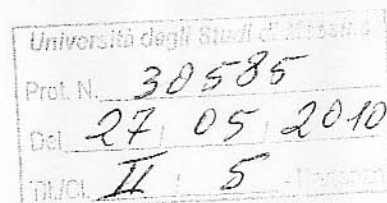 Università degli Studi di Messina
Prot. N. 30585
Del 27 / 05 / 2010
Tit/Cl. II / 5